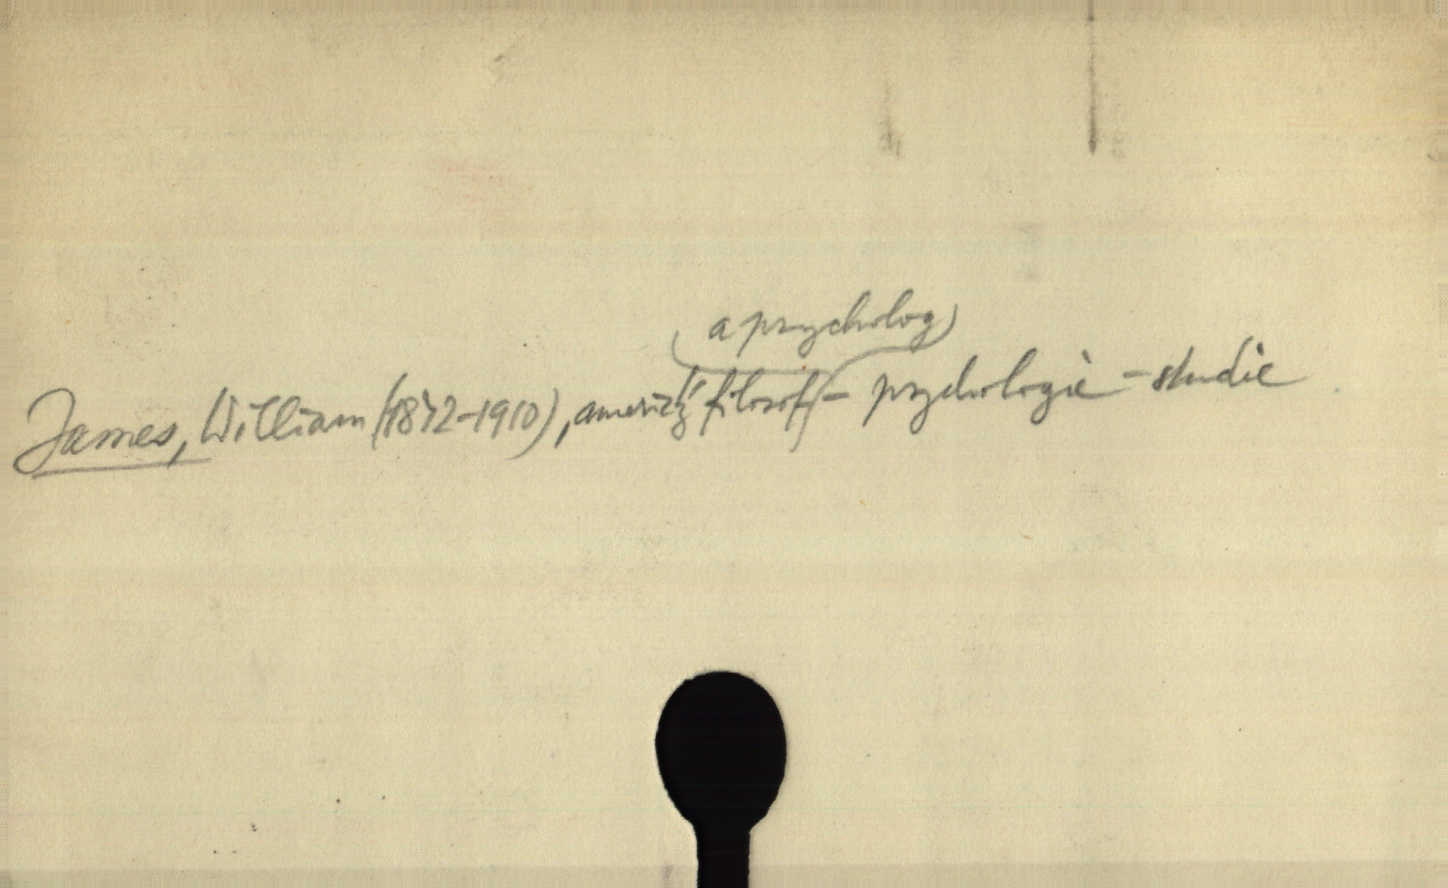 James, William (1842-1910), americký filosof a psycholog - psychologie - studie